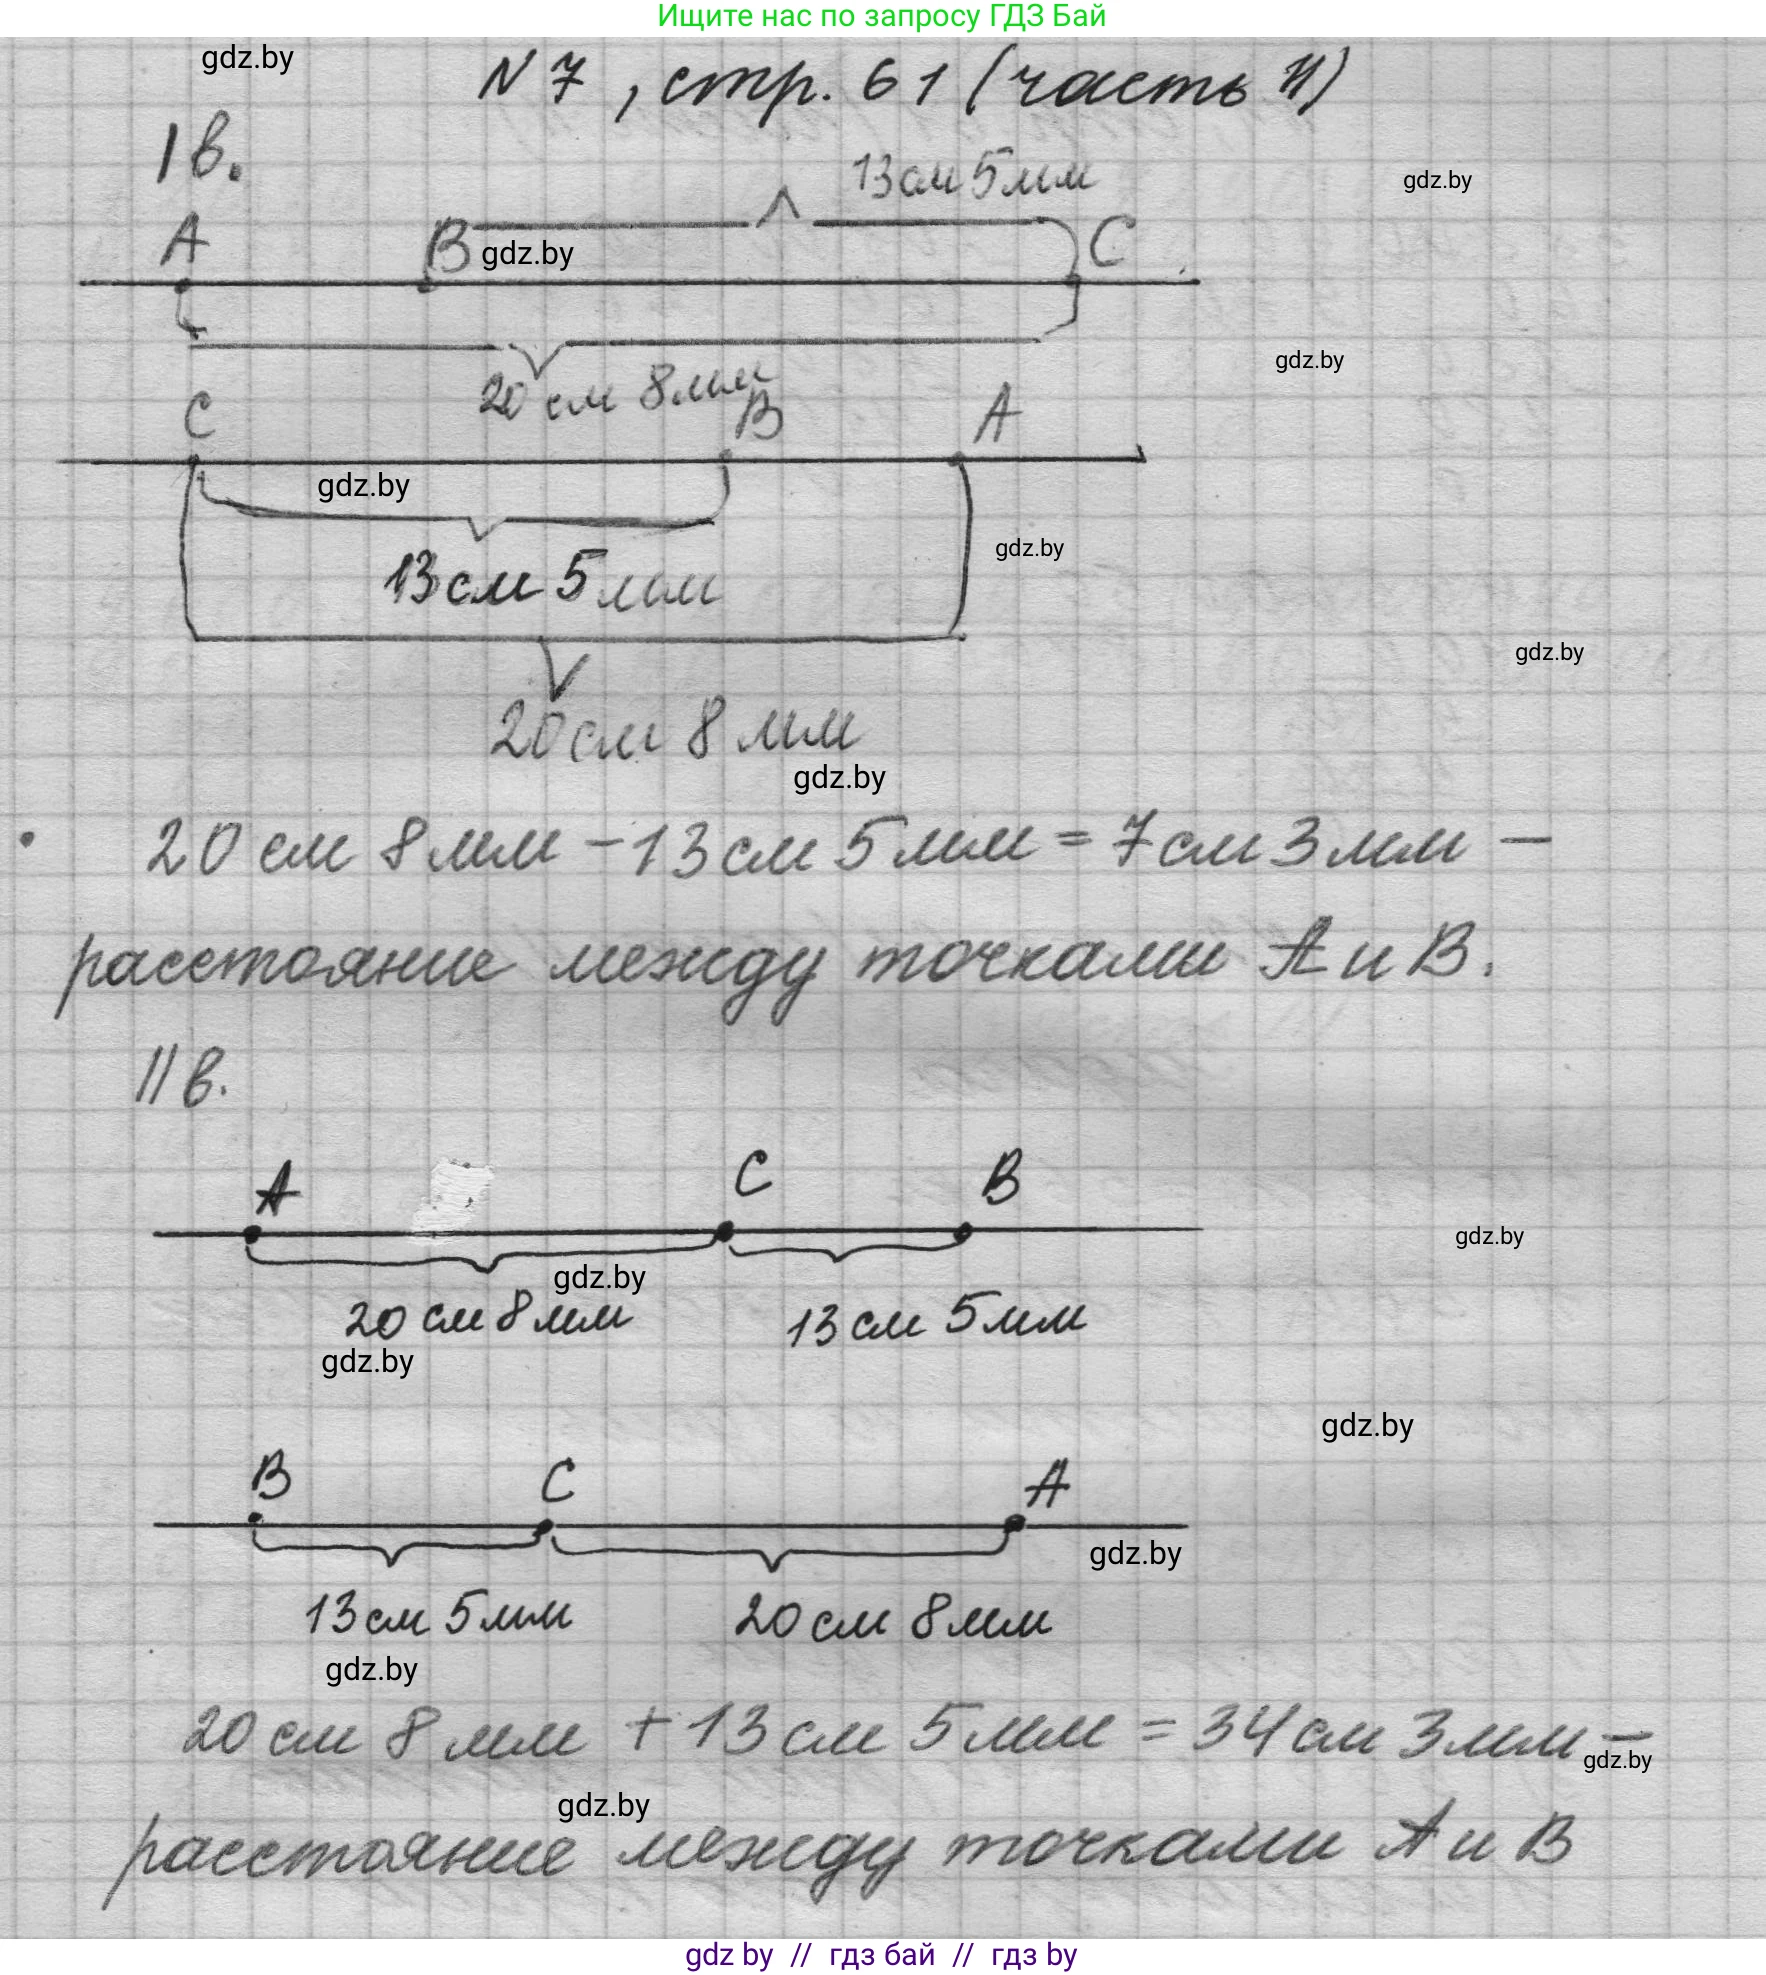 Ищите нас по запросу ГДЗ Бай
gdz.by
N 7, стр. 61 (часть II)
I в.
13 см 5 мм
gdz.by
A B C
gdz.by
20 см 8 мм
gdz.by
C B A
gdz.by
13 см 5 мм
gdz.by
gdz.by
20 см 8 мм
gdz.by
20 см 8 мм - 13 см 5 мм = 7 см 3 мм -
расстояние между точками A и B.
II в.
A C B
gdz.by
gdz.by
20 см 8 мм 13 см 5 мм
gdz.by
gdz.by
B C A
gdz.by
13 см 5 мм 20 см 8 мм
gdz.by
20 см 8 мм + 13 см 5 мм = 34 см 3 мм -
gdz.by
gdz.by
расстояние между точками A и B
gdz by // гдз бай // гдз by